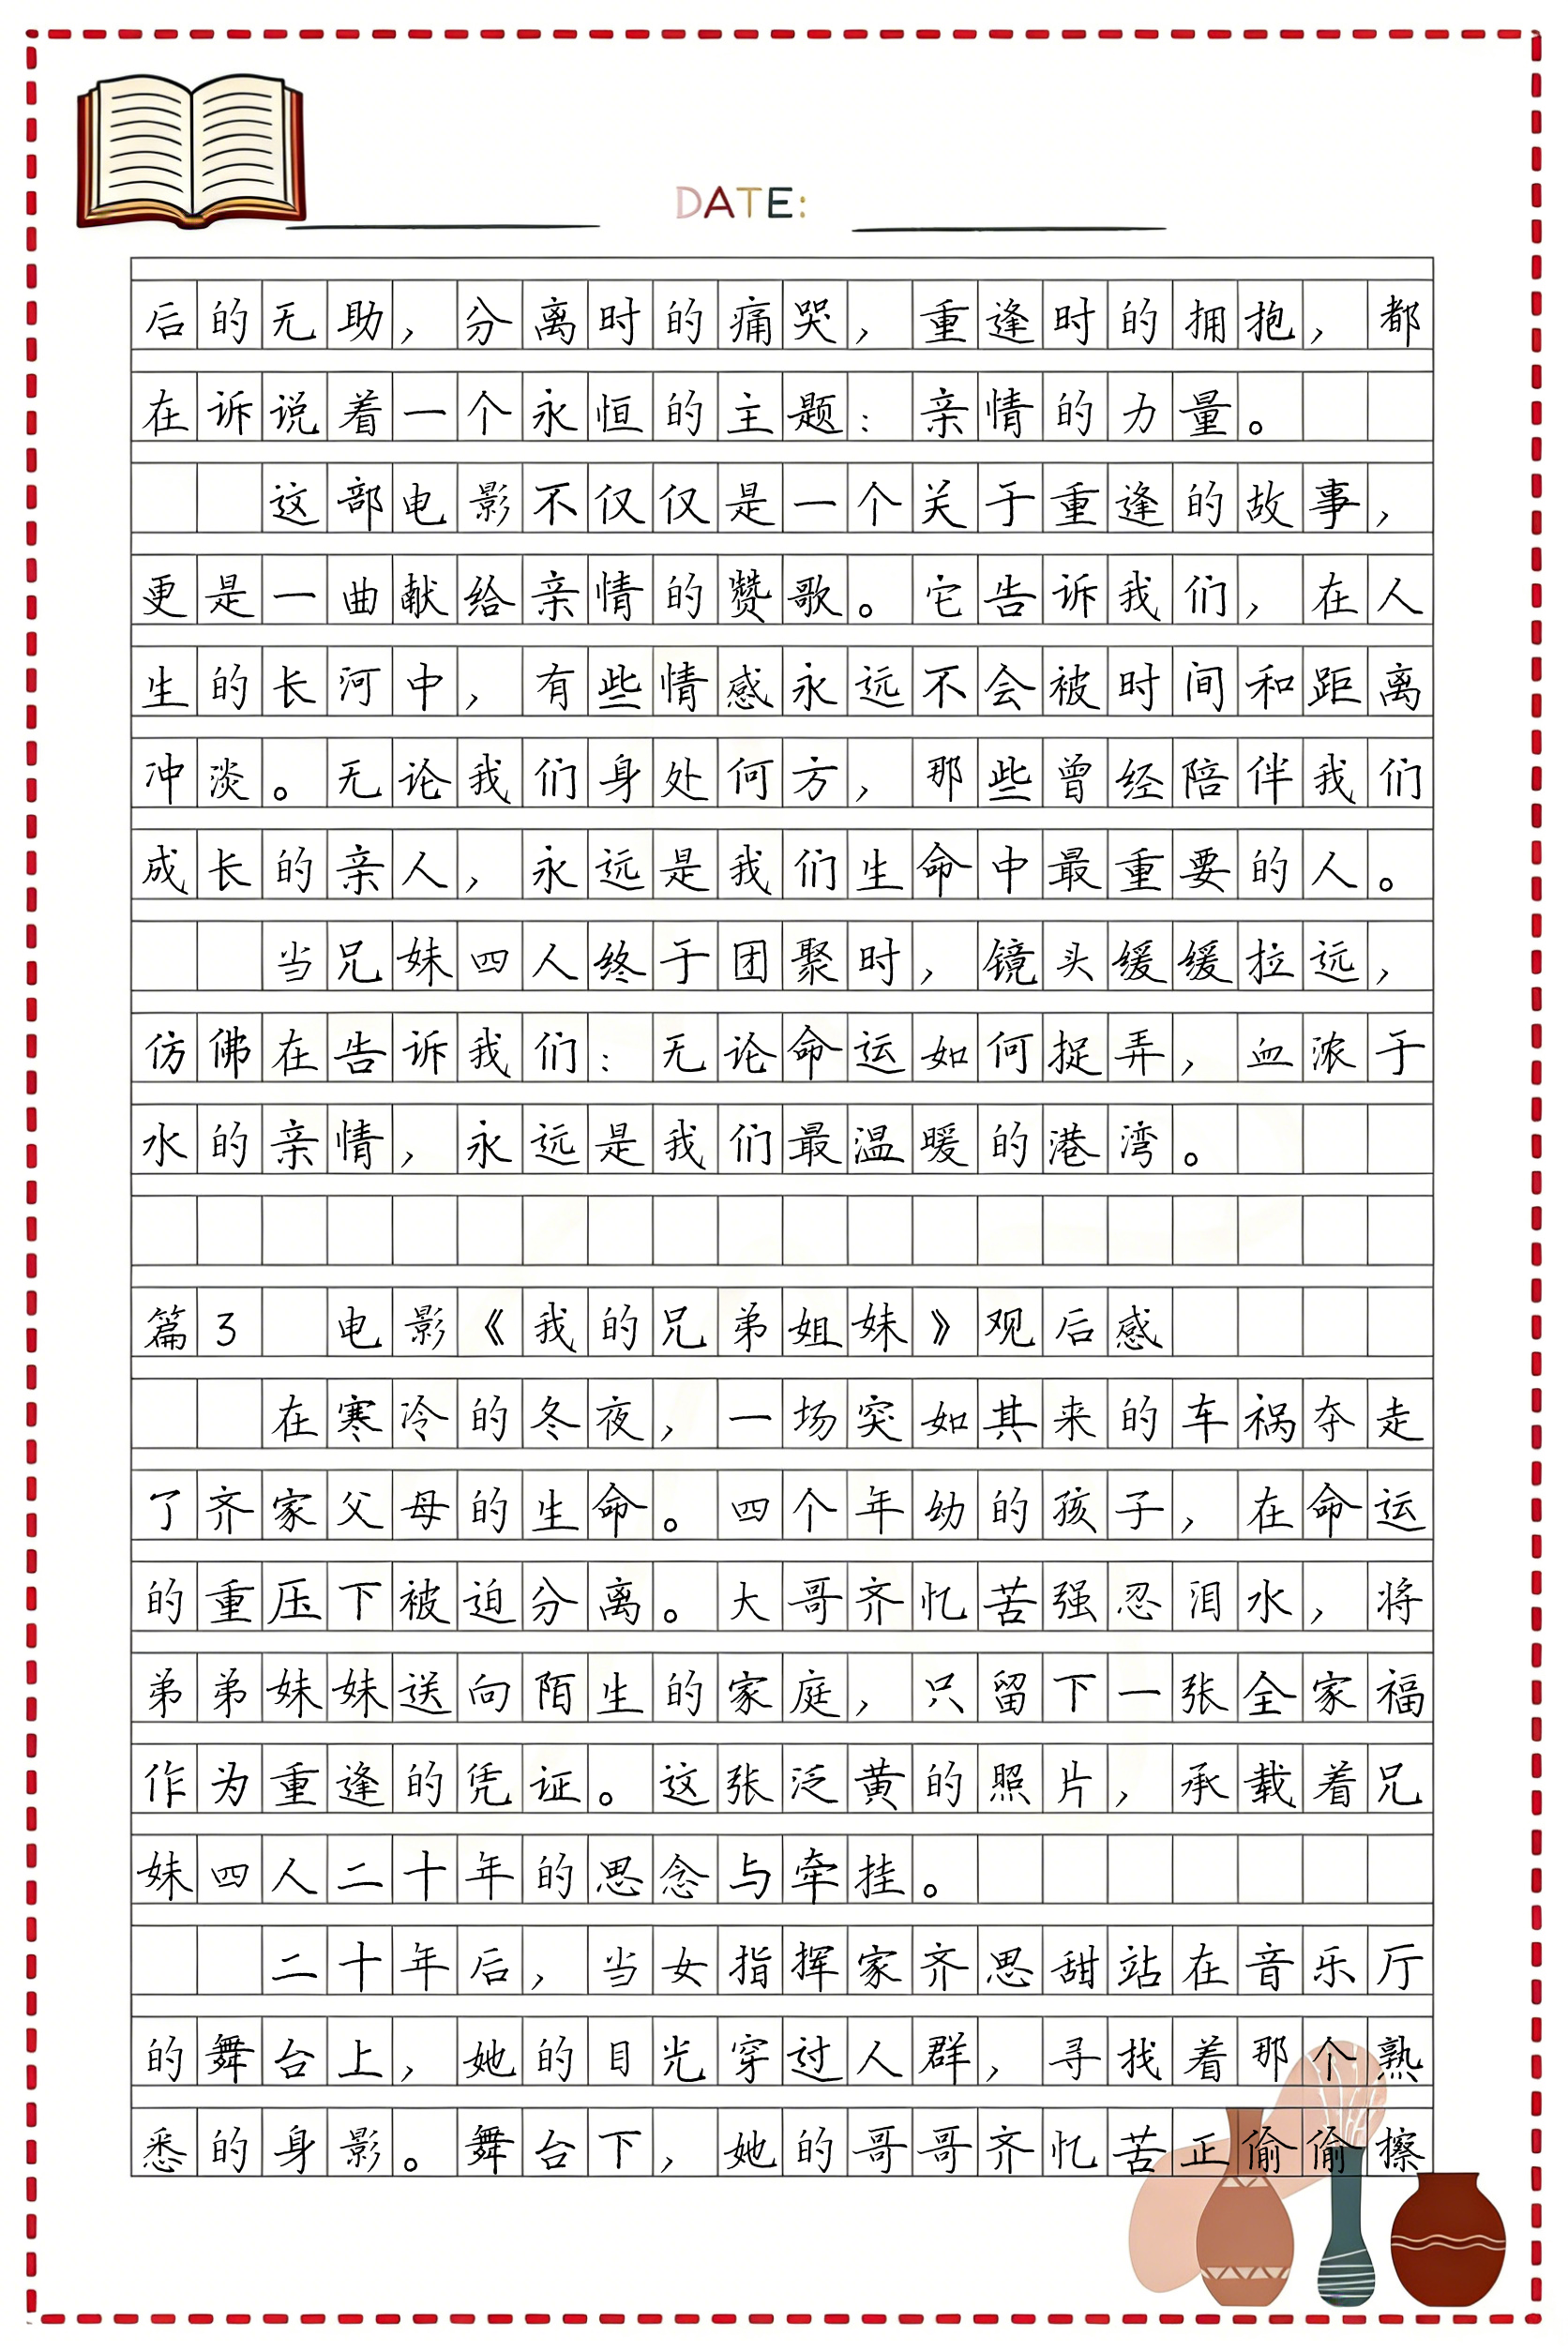 DATE:
后的无助，分离时的痛哭，重逢时的拥抱，都
在诉说着一个永恒的主题：亲情的力量。
这部电影不仅仅是一个关于重逢的故事，
更是一曲献给亲情的赞歌。它告诉我们，在人
生的长河中，有些情感永远不会被时间和距离
冲淡。无论我们身处何方，那些曾经陪伴我们
成长的亲人，永远是我们生命中最重要的人。
当兄妹四人终于团聚时，镜头缓缓拉远，
仿佛在告诉我们：无论命运如何捉弄，血浓于
水的亲情，永远是我们最温暖的港湾。
篇3 电影《我的兄弟姐妹》观后感
在寒冷的冬夜，一场突如其来的车祸夺走
了齐家父母的生命。四个年幼的孩子，在命运
的重压下被迫分离。大哥齐忆苦强忍泪水，将
弟弟妹妹送向陌生的家庭，只留下一张全家福
作为重逢的凭证。这张泛黄的照片，承载着兄
妹四人二十年的思念与牵挂。
二十年后，当女指挥家齐思甜站在音乐厅
的舞台上，她的目光穿过人群，寻找着那个熟
悉的身影。舞台下，她的哥哥齐忆苦正偷偷擦